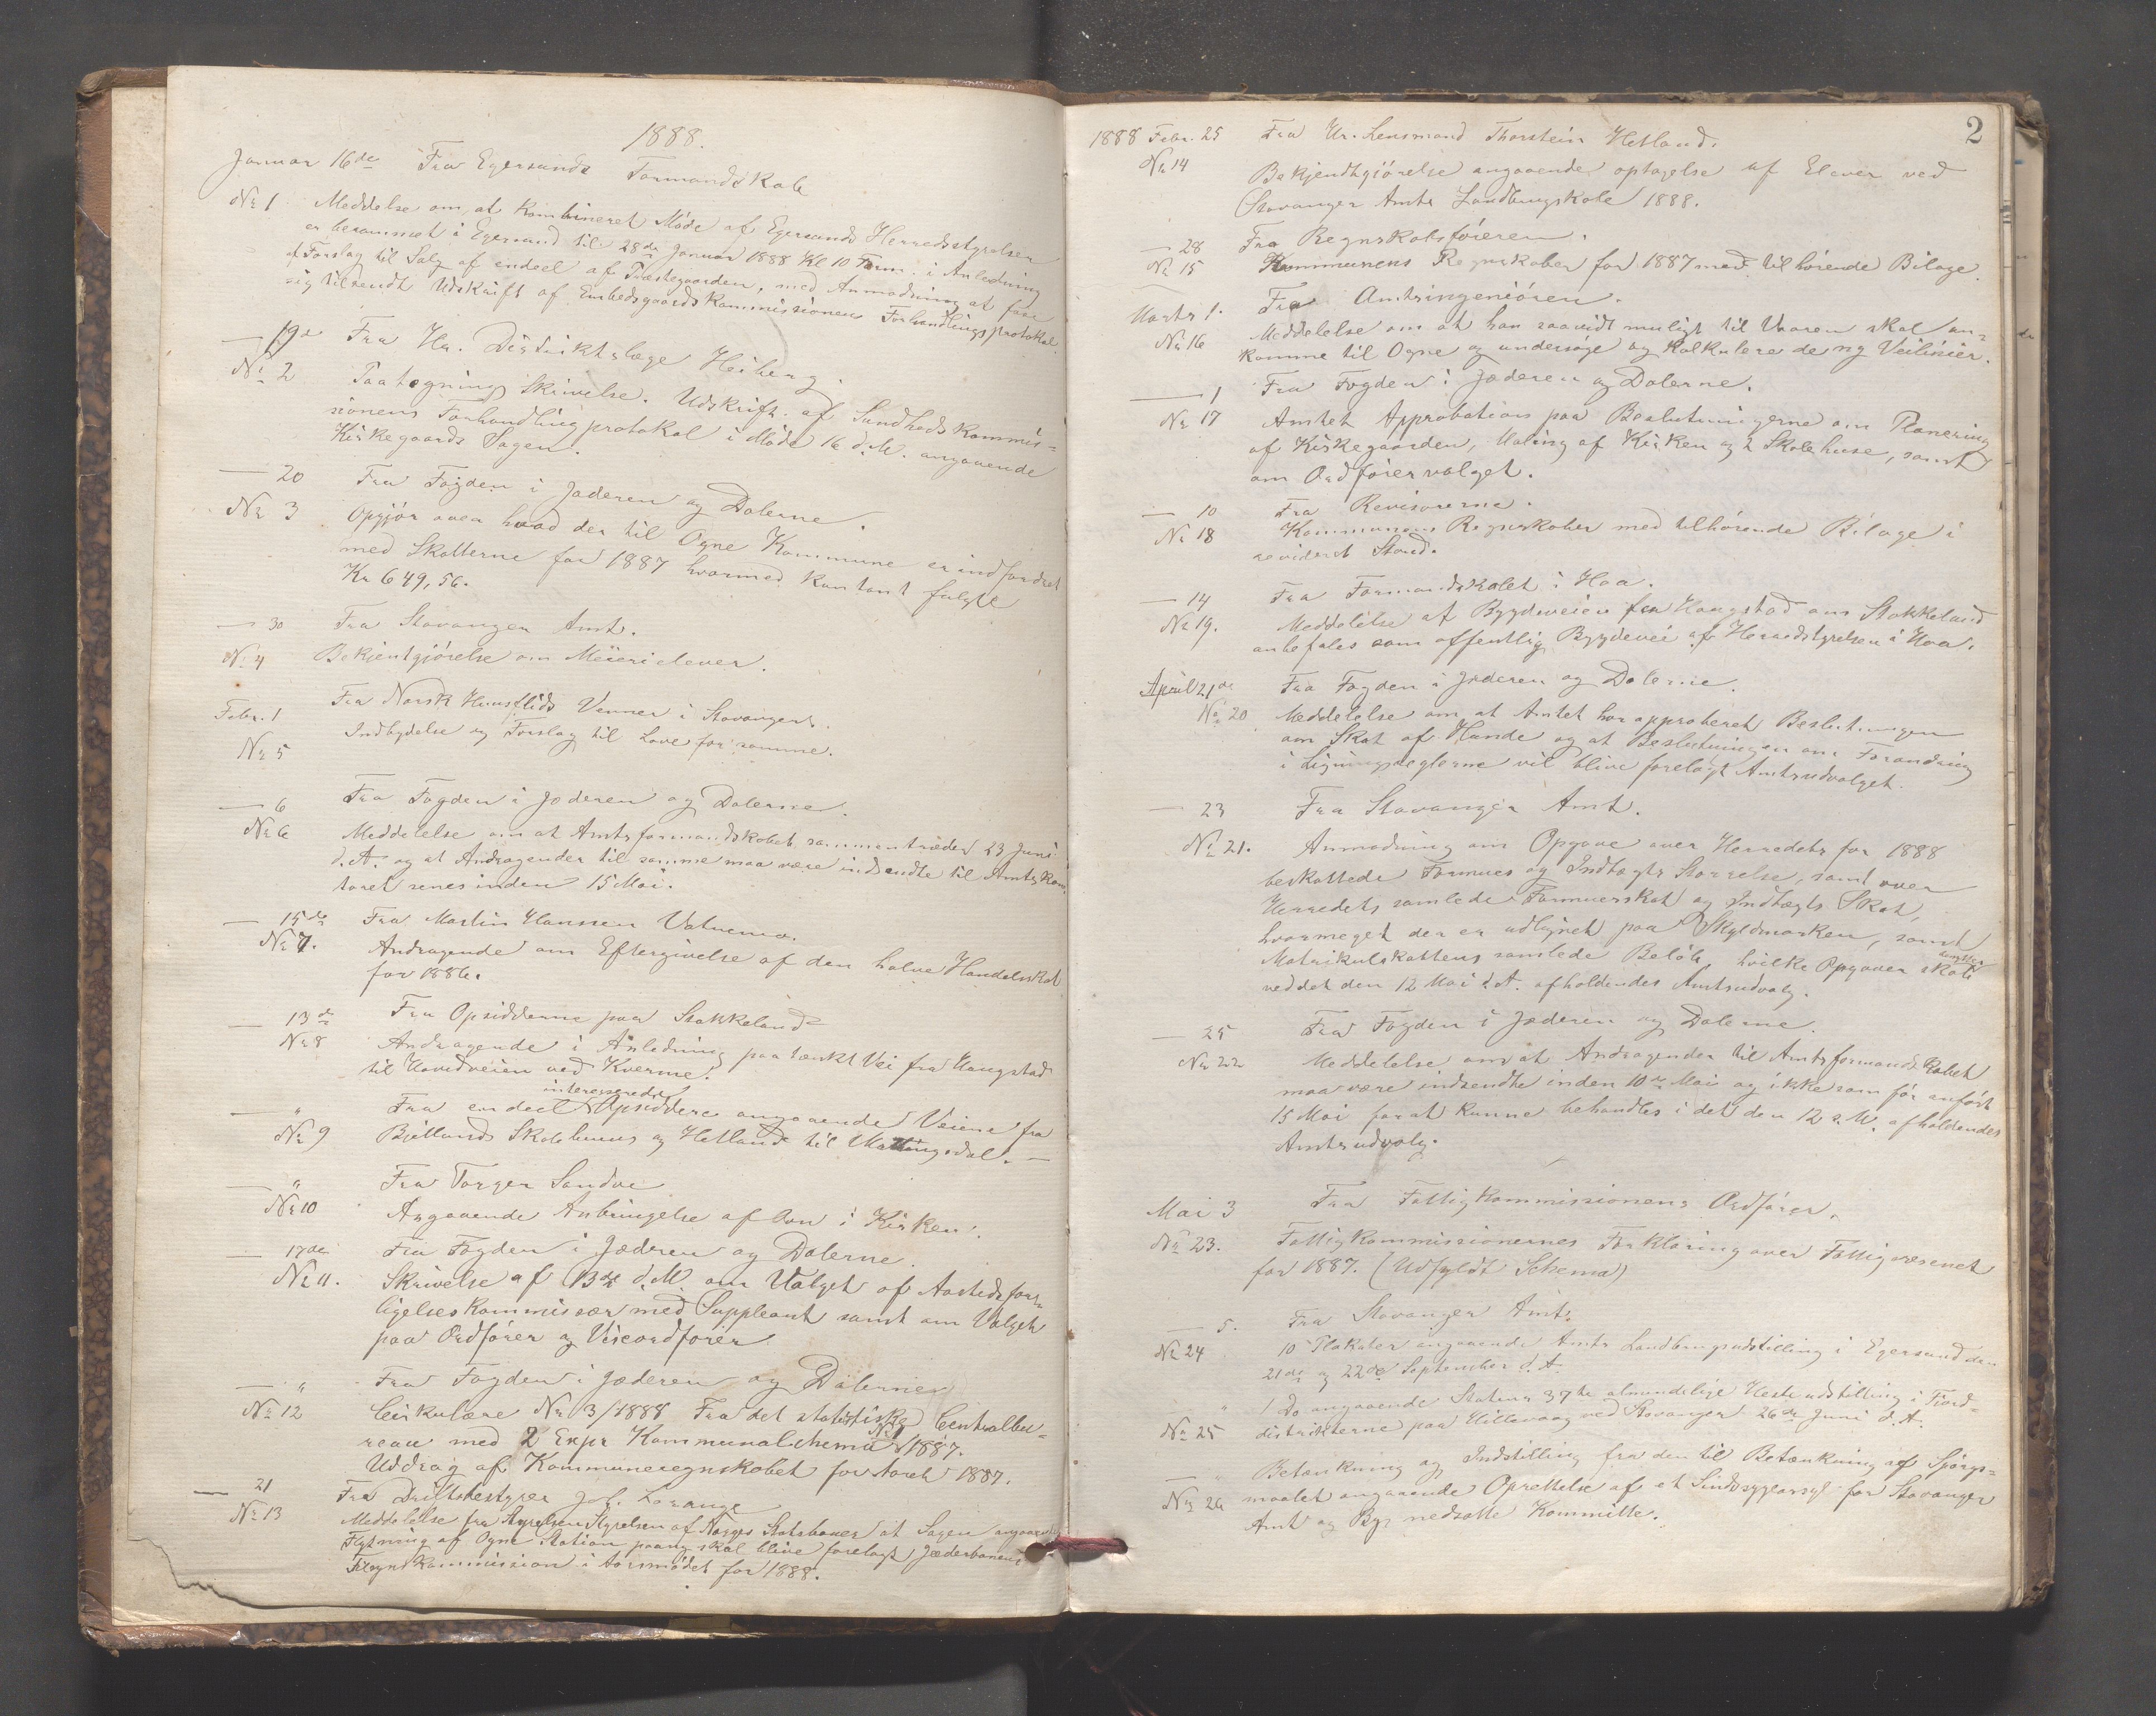 1888.
Januar 16de Fra Egersunds Formandskab
No 1 Meddelse om, at kombineret Møde af Egersunds Herredsstyrelser
er berammet i Egersund til 28de Januar 1888 Kl 10 Form. i Anledning
af Forslag til Salg af endeel af Præstegaarden, med Anmodning at faa
sig tilsendt Udskrift af Embedsgaards Kommissionens Forhandlingsprotokol.
— 19de Fra Hr. Distriktslæge Heiberg.
No 2 Paategnings Skrivelse. Udskrift af Sundhedskommis=
sionens Forhandlingprotokol i Møde 16 d.M. angaaende
Kirkegaards Sagen.
— 20 Fra Fogden i Jæderen og Dalerne.
No 3 Opgjør over hvad der til Ogne Kommune er indfordret
med Skatterne for 1887 hvormed kontant fulgte
Kr 649,56.
— 30 Fra Stavanger Amt.
No 4 Bekjentgjørelse om Meierielever.
Febr. 1 Fra Norsk Husflids Venner i Stavanger.
No 5 Indbydelse og Forslag til Love for samme.
— 6 Fra Fogden i Jæderen og Dalerne.
No 6 Meddelelse om at Amtsformandskabet sammentræder 23 Juni
d.A. og at Andragender til samme maa være indsendte til Amtskon=
toret senes inden 15 Mai.
— 15de Fra Martin Hanssen Vatnemo.
No 7. Andragende om Eftergivelse af den halve Handelsskat
for 1886.
— 13de Fra Opsidderne paa Stokkeland
No 8 Andragende i Anledning paatænkt Vei fra Haugstad
til Hovedveien ved Kverme.
interesserede
— " Fra endeel Opsiddere angaaende Veiene fra
No 9 Bjellands Skolehuus og Hetland til Matningsdal. —
— " Fra Torger Sandve
No 10 Angaaende Anbringelse af Ovn i Kirken.
— 17de Fra Fogden i Jæderen og Dalerne.
No 11. Skrivelse af 13de d.M. om Valget af Aastedsfor=
ligelseskommissær med Suppleant samt om Valget
paa Ordfører og Viceordfører
— " Fra Fogden i Jæderen og Dalerne
No 12 Cirkulære No 3/1888 Fra det statistiske Centralbu=
reau med 2 Expr Kommunalschema No 1 1887.
Uddrag af Kommuneregnskabet for Aaret 1887.
— 21 Fra Driftsbestyrer Joh. Lorange
No 13 Meddelelse fra Styrelsen af Norges Statsbaner at Sagen angaaende
Flytning af Ogne Station paany skal blive forelagt Jæderbanens
Tilsynskommission i Aarsmødet for 1888.
2
1888 Febr. 25 Fra Hr. Lensmand Thorstein Hetland.
No 14 Bekjendtgjørelse angaaende optagelse af Elever ved
Stavanger Amts Landbrugskole 1888.
— 28 Fra Regnskabsføreren.
No 15 Kommunens Regnskaber for 1887 med tilhørende Bilage.
Marts 1. Fra Amtsingeniøren.
No 16 Meddelelse om at han saavidt muligt til Vaaren skal an=
komme til Ogne og undersøge og kalkulere de ny Veilinier.
— 1 Fra Fogden i Jæderen og Dalerne.
No 17 Amtets Approbation paa Beslutningerne om Planering
af Kirkegaarden, Maling af Kirken og 2 Skolehuse, samt
om Ordførervalget.
— 10 Fra Revisorerne.
No 18 Kommunens Regnskaber med tilhørende Bilage i
revideret Stand.
— 14 Fra Formandskabet i Haa.
No 19. Meddelelse af Bygdeveien fra Haugstad om Stokkeland
anbefales som offentlig Bygdevei af Herredstyrelsen i Haa.
April 21de Fra Fogden i Jæderen og Dalerne.
No 20 Meddelelse om at Amtet har approberet Beslutningen
om Skat af Hunde og at Beslutningen om Forandring
i Ligningsreglerne vil blive forelagt Amtsudvalget.
— 23 Fra Stavanger Amt.
No 21. Anmodning om Opgave over Herredets for 1888
beskattede Formues og Indtægts Størrelse, samt over
Herredets samlede Formueskat og Indtægts Skat,
hvormeget der er udlignet paa Skyldmarken, samt
Matrikulskattens samlede Beløb, hvilke Opgaver skal
ved det den 12 Mai d.A. afholdendes Amtsudvalg.
— 25 Fra Fogden i Jæderen og Dalerne.
No 22 Meddelelse om at Andragender til Amtsformandskabet
maa være indsendte inden 10de Mai og ikke som før anført
15 Mai for at kunne behandles i det den 12 s.M. afholdendes
Amtsudvalg.
Mai 3 Fra Fattigkommissionens Ordfører.
No 23. Fattigkommissionernes Forklaring over Fattigvæsenet
for 1887. (Udfyldt Schema)
— 5. Fra Stavanger Amt.
No 24 10 Plakater angaaende Amts Landbrugsudstilling i Egersund den
21de og 22de September d.A.
" 1 Do angaaende Statens 37te almindelige Hesteudstilling i Fjord=
No 25 distrikterne paa Hillevaag ved Stavanger 26de Juni d.A.
" Betænkning og Indstilling fra den til Betænkning af Spørgs=
No 26 maalet angaaende Oprettelse af et Sindssygeasyl for Stavanger
Amt og By nedsatte Kommitte.